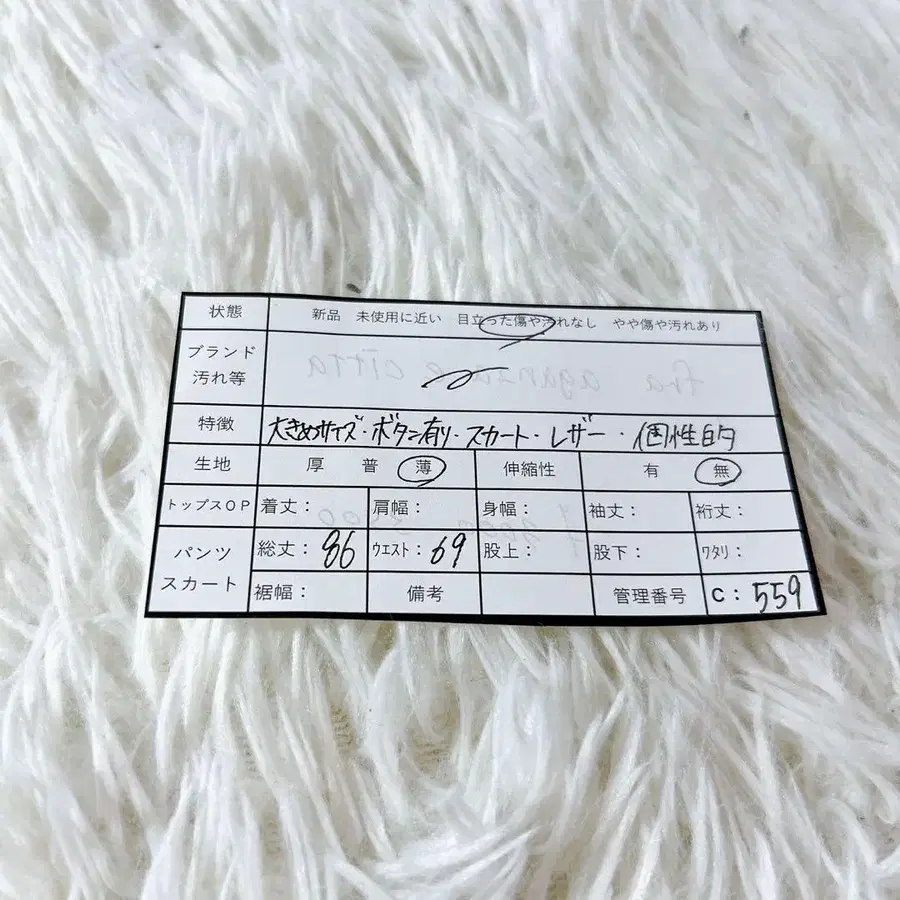 状態 新品 未使用に近い 目立った傷や汚れなし やや傷や汚れあり
ブランド
汚れ等
特徴 大きめサイズ・ボタン有り・スカート・レザー・個性的
生地 厚 普 薄 伸縮性 有 無
トップスOP 着丈: 肩幅: 身幅: 袖丈: 裄丈:
パンツ
スカート
総丈: 86 ウエスト: 69 股上: 股下: ワタリ:
裾幅: 備考 管理番号 C: 559